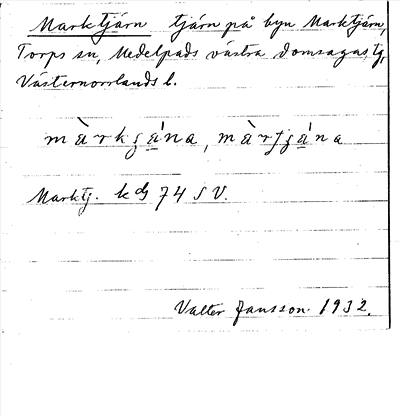 Marktjärn tjärn på byn Marktjärn,
Torps sn, Medelpads västra domsagas tg,
Västernorrlands l.
Marktj. kbl 74 SV.
Valter Jansson 1932.